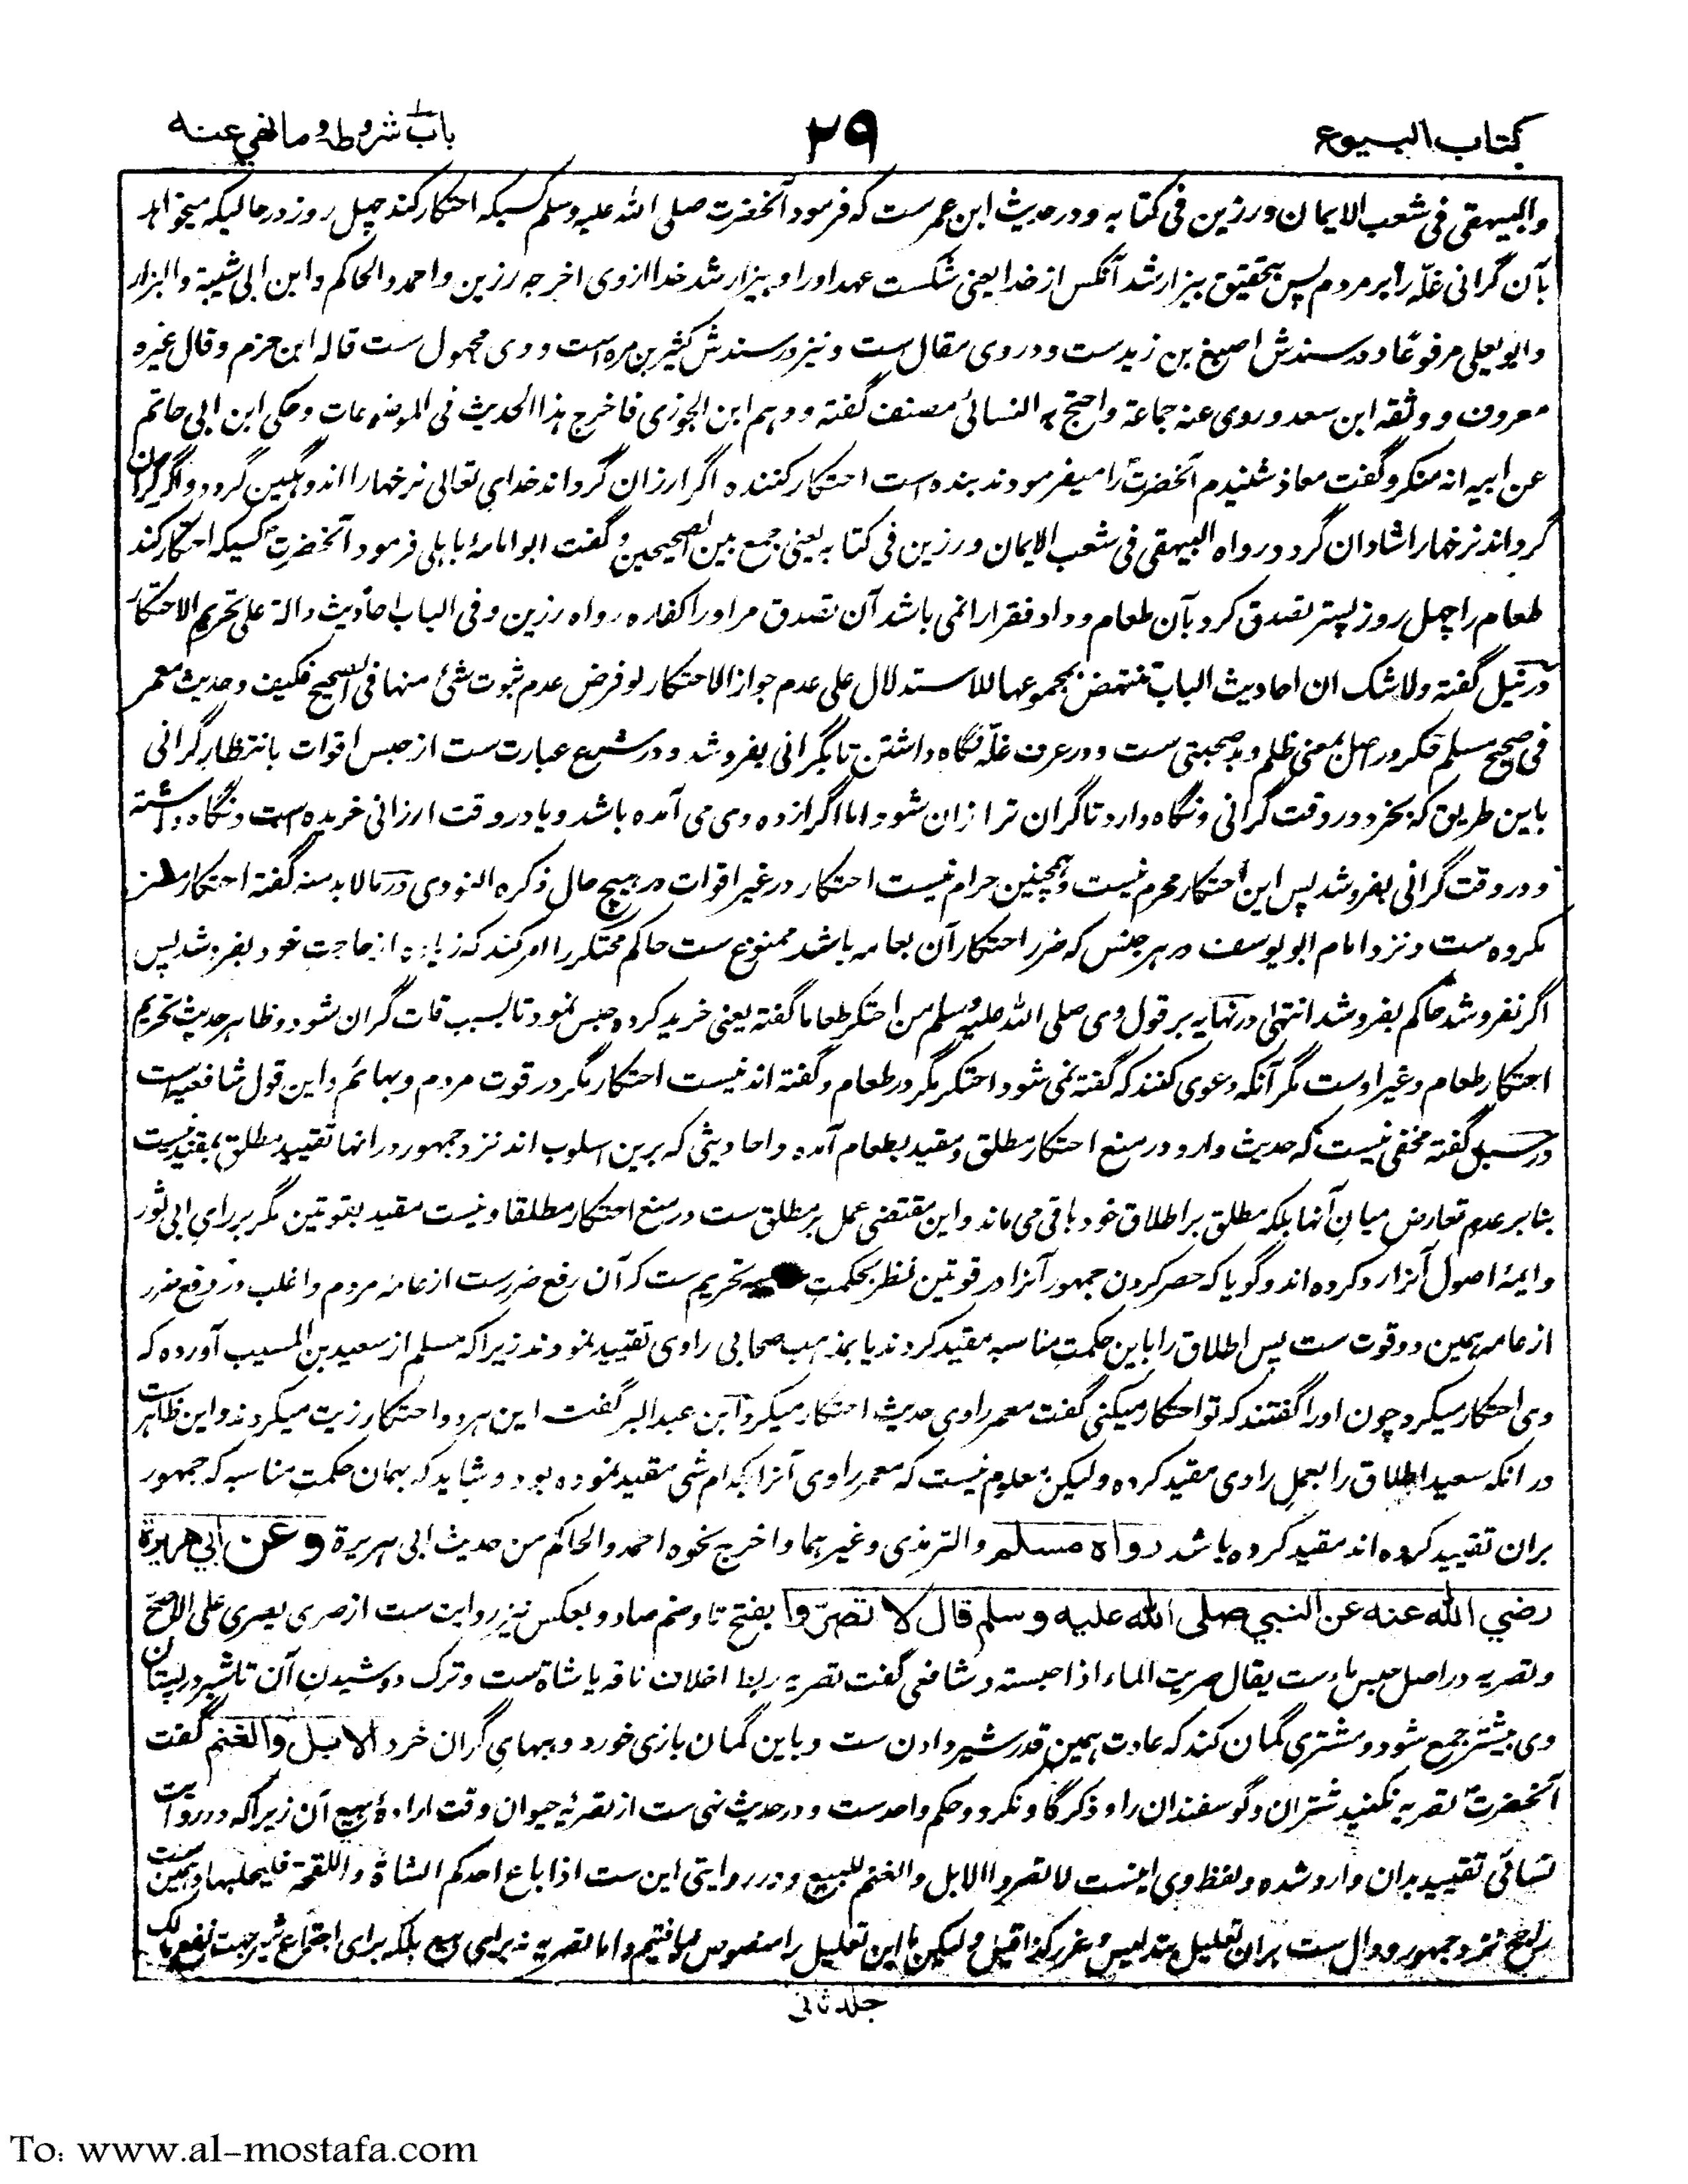 كتاب البيوع ٢٩ باب شروطه وما نهي عنه
والبیهقی فی شعب الایمان ورزین فی کتابه و در حدیث ابن عمر ست که فرمود آنحضرت صلی الله علیه وسلم کسیکه احتکار کند چهل روز در حالیکه میخواهد
بآن گرانی غلّه را بر مردم پس بتحقیق بیزار شد آنکس از خدا یعنی شکست عهد او را و بیزار شد خدا از وی اخرجه رزین و احمد والحاکم وابن ابی شیبة والبزار
وابو یعلی مرفوعًا و در سندش اصبغ بن زید ست و در وی مقال ست و نیز در سندش کثیر بن مره است و وی مجهول ست قاله ابن حزم وقال غیره
معروف و وثقه ابن سعد وروی عنه جماعة واحتج به النسائی مصنف گفته و وهم ابن الجوزی فاخرج هذا الحدیث فی الموضوعات وحکی ابن ابی حاتم
عن ابیه انه منکر و گفت معاذ شنیدم آنحضرت را میفرمودند بنده است احتکار کننده اگر ارزان گرداند خدای تعالی نرخها را اندوهگین گردد و اگر گران
گرداند نرخها را شادان گردد رواه البیهقی فی شعب الایمان ورزین فی کتابه یعنی جمع بین الصحیحین و گفت ابو امامهٔ باهلی فرمود آنحضرت کسیکه احتکار کند
طعام را چهل روز پستر تصدق کرد بآن طعام و داد فقرا را نمی باشد آن تصدق مر او را کفاره رواه رزین وفی الباب احادیث دالة علی تحریم الاحتکار
در نیل گفته ولا شک ان احادیث الباب تنتهض بمجموعها للاستدلال علی عدم جواز الاحتکار لو فرض عدم ثبوت شئ منها فی الصحیح فکیف وحدیث معمر
فی صحیح مسلم حکر در اصل بمعنی ظلم و بد صحبتی ست و در عرف غلّه نگاه داشتن تا بگرانی بفروشد و در شرع عبارت ست از حبس اقوات بانتظار گرانی
باین طریق که بخرد در وقت گرانی و نگاه دارد تا گران تر ازان شود اما اگر از ده وی می آمده باشد و یا در وقت ارزانی خریده است و نگاه داشته
و در وقت گرانی بفروشد پس این احتکار محرم نیست و همچنین حرام نیست احتکار در غیر اقوات در هیچ حال ذکره النووی در مالابدمنه گفته احتکار
مکروه ست و نزد امام ابو یوسف در هر جنس که ضرر احتکار آن بعامه باشد ممنوع ست حاکم محتکر را امر کند که زیاده از حاجت خود بفروشد پس
اگر نفروشد حاکم بفروشد انتهی در نهایه بر قول وی صلی الله علیه وسلم من احتکر طعاما گفته یعنی خرید کرده حبس نمود تا بسبب قلت گران شود و ظاهر حدیث تحریم
احتکار طعام و غیر اوست مگر آنکه دعوی کنند که گفته نمی شود احتکر مگر در طعام و گفته اند نیست احتکار مگر در قوت مردم و بهائم و این قول شافعیه است
در سبل گفته مخفی نیست که حدیث وارد در منع احتکار مطلق و مقید بطعام آمده و احادیثی که برین اسلوب اند نزد جمهور در انها تقیید مطلق بمقید نیست
بنابر عدم تعارض میان آنها بلکه مطلق بر اطلاق خود باقی می ماند و این مقتضی عمل بر مطلق ست در منع احتکار مطلقا و نیست مقید بقوتین مگر بر رای ابی ثور
وایمهٔ اصول آنرا رد کرده اند و گویا که حصر کردن جمهور آنرا در قوتین نظر بحکمت تحریم ست که آن رفع ضرر ست از عامه مردم و اغلب در وقوع ضرر
از عامه همین دو قوت ست پس اطلاق را باین حکمت مناسبه مقید کردند یا بمذهب صحابی راوی تقیید نمودند زیرا که مسلم از سعید بن المسیب آورده که
وی احتکار میکرد چون او را گفتند که تو احتکار میکنی گفت معمر راوی حدیث احتکار میکرد ابن عبدالبر گفت این هر دو احتکار زیت میکردند و این ظاهر ست
در انکه سعید اطلاق را بعمل راوی مقید کرده ولیکن معلوم نیست که معمر راوی آنرا بکدام شی مقید نموده بود و شاید که بهمان حکمت مناسبه که جمهور
بران تقیید کرده اند مقید کرده باشد رواه مسلم والترمذی وغیرهما واخرج نحوه احمد والحاکم من حدیث ابی هریرة وعن أبي هريرة
رضي الله عنه عن النبي صلى الله عليه وسلم قال لا تصرّوا بفتح تا وضم صاد و بعکس نیز روایت ست از صری یصری علی الاصح
و تصریه در اصل حبس ماء ست یقال صریت الماء اذا حبسته و شافعی گفت تصریه ربط اخلاف ناقه یا شاة ست و ترک دوشیدن آن تا شیر در پستان
وی بیشتر جمع شود و مشتری گمان کند که عادت همین قدر شیر دادن ست و باین گمان بازی خورد و ببهای گران خرد الابل والغنم گفت
آنحضرت تصریه نکنید شتران و گوسفندان را و ذکر گاو نکرد و حکم واحد ست و در حدیث نهی ست از تصریهٔ حیوان وقت ارادهٔ بیع آن زیرا که در روایت
نسائی تقیید بدان وارد شده و لفظ وی اینست لا تصروا الابل والغنم للبیع و در روایتی این ست اذا باع احدکم الشاة واللقحة فلیحلبها و همین ست
راجح نزد جمهور و دال ست بران تعلیل بتدلیس و غرر کذا قیل ولیکن این تعلیل را منصوص نیافتیم و اما تصریه نه برای بیع بلکه برای اجتماع شیر بجهت نفع مالک
جلد ثانی
To: www.al-mostafa.com